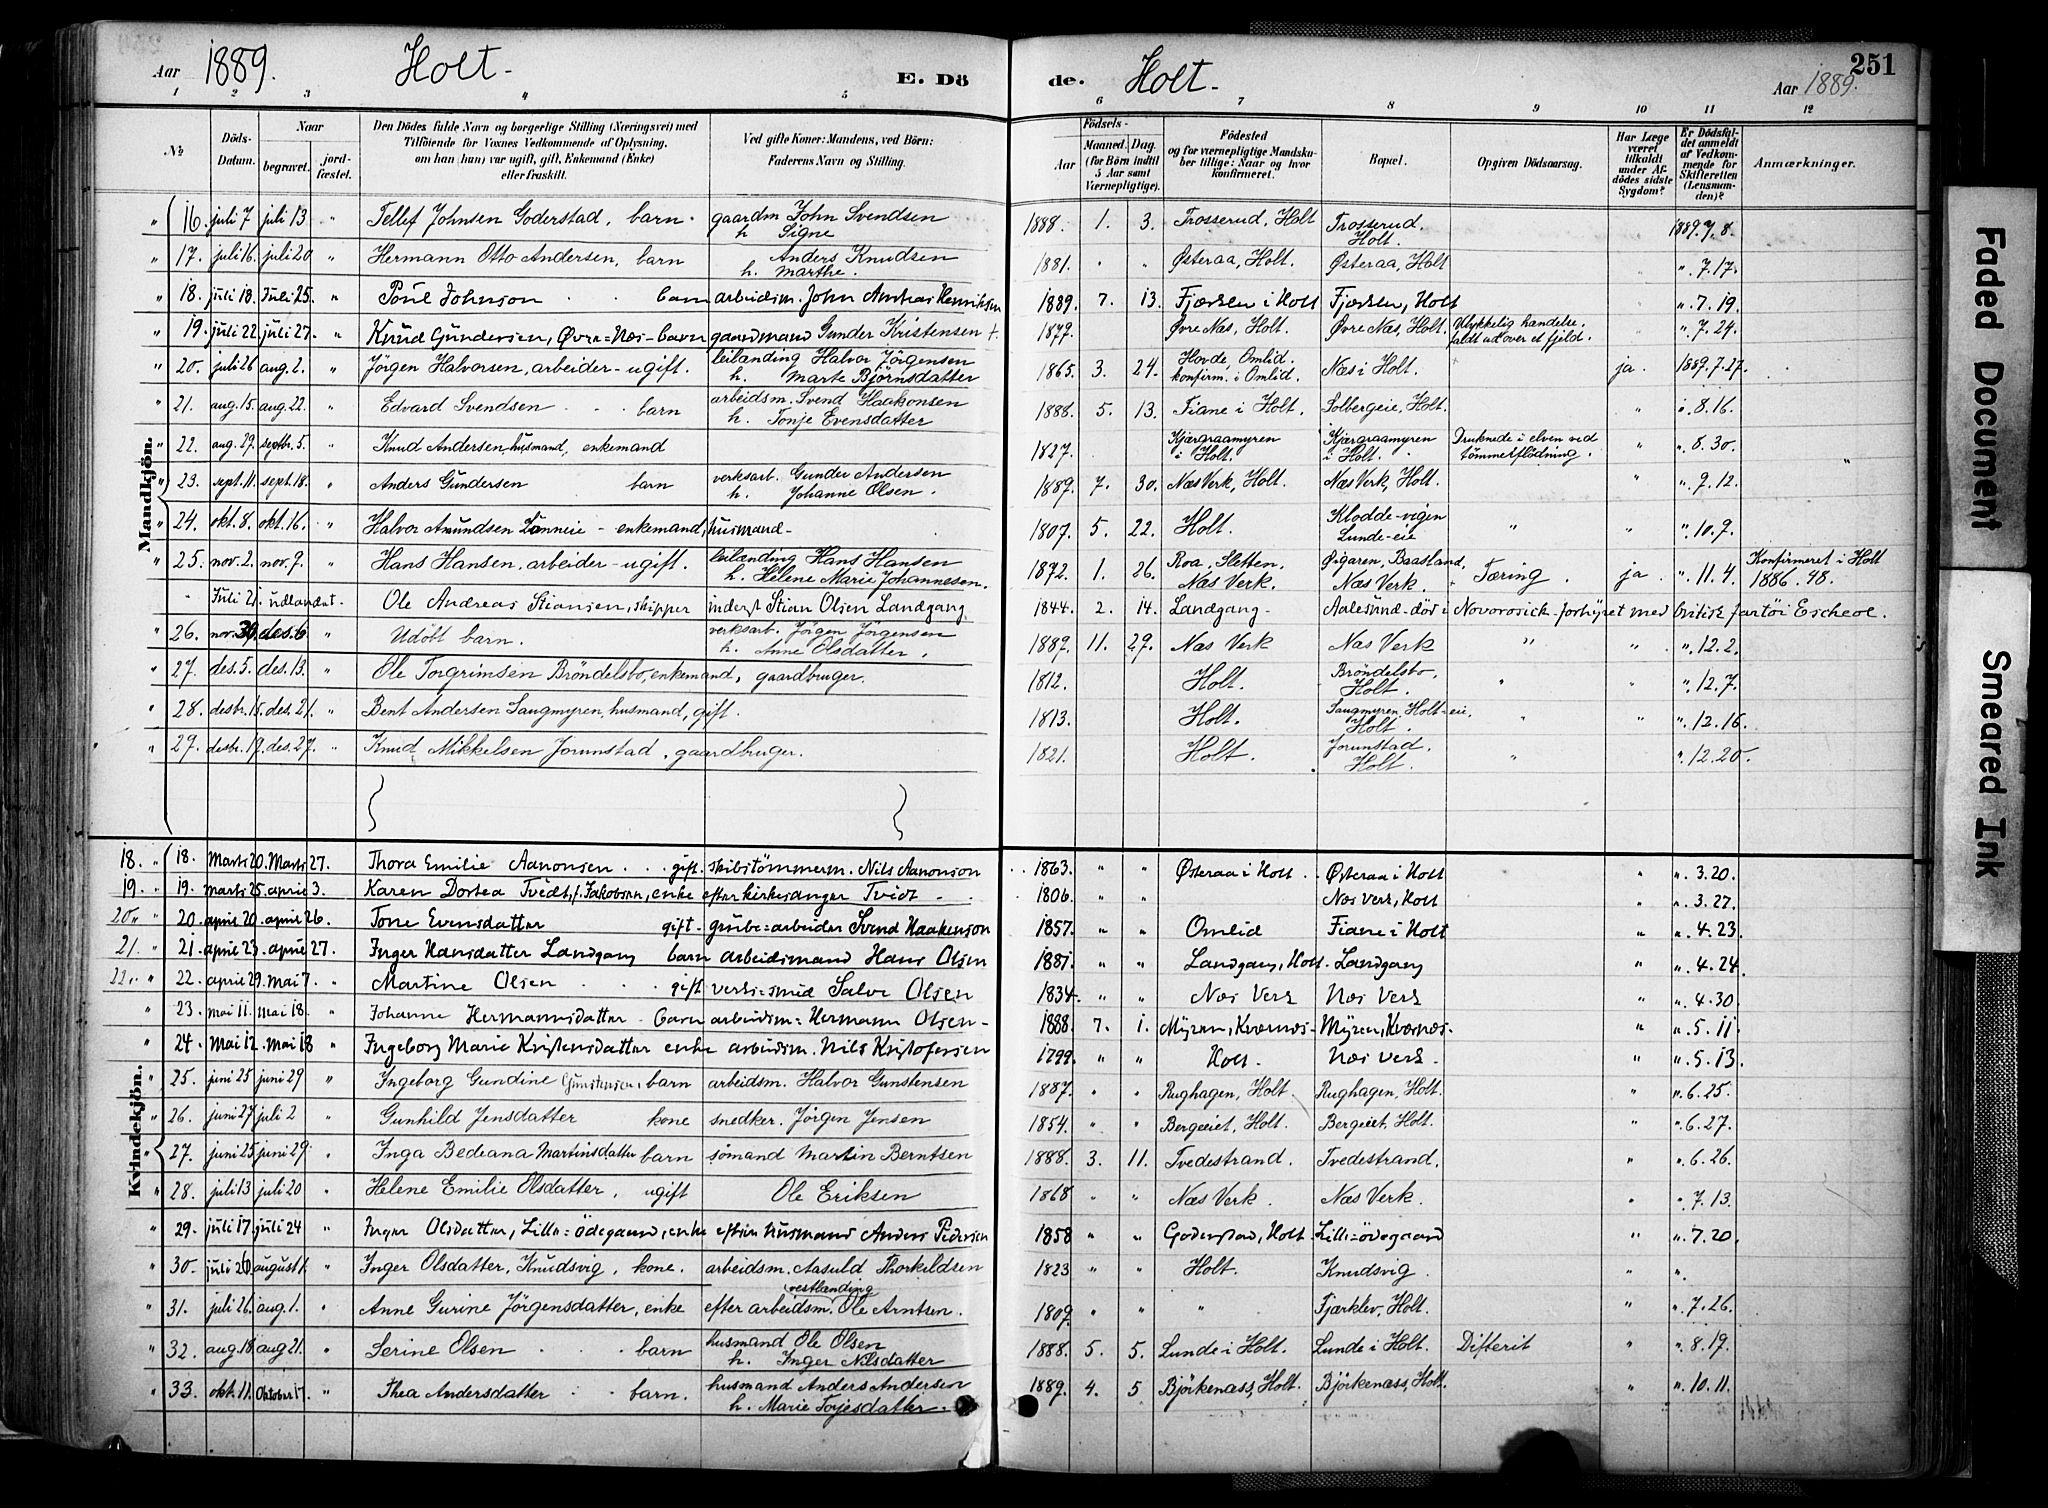 Aar 1889. Holt. E. Dö de. Holt. 251 Aar 1889.
1 2 3 4 5 6 7 8 9 10 11 12
No
Döds-Datum.
Naar begravet. jord-fæstet.
Den Dödes fulde Navn og borgerlige Stilling (Næringsvei) med
Tilföiende for Voxnes Vedkommende af Oplysning,
om han (hun) var ugift, gift, Enkemand (Enke)
eller fraskilt.
Ved gifte Koner: Mandens, ved Börn:
Faderens Navn og Stilling.
Födsels-
Aar Maaned. Dag.
(for Börn indtil
5 Aar samt
Værnepligtige).
Födested
og for værnepligtige Mandskaber tillige: Naar og hvor
konfirmeret.
Bopæl.
Opgiven Dödsaarsag.
Har Læge
været
tilkaldt
under Afdödes sidste
Sygdom?
Er Dödsfaldet anmeldt
af Vedkommende for
Skifteretten
(Lensmanden)?
Anmærkninger.
Mandkjön.
" 16. juli 7 juli 13 " Tellef Johnsen Goderstad, barn. gaardm John Svendsen h. Signe 1888. 1. 3. Trosserud, Holt Trosserud. Holt. 1889.7.8.
" 17. juli 16. juli 20 " Hermann Otto Andersen, barn Anders Knudsen h. Marthe. 1881. " " Østeraa, Holt. Østeraa, Holt ". 7.17.
" 18. juli 18. Juli 25. " Poul Johnson barn arbeidsm. John Andreas Henriksen 1889. 7. 13. Fjærsen i Holt Fjærsen, Holt ". 7. 19.
" 19. juli 22 juli 27. " Knud Gundersen, Øvre-Næs- barn gaardmand Gunder Kristensen +. 1877. Øvre Næs, Holt. Øvre Næs, Holt. Ulykkelig hændelse. faldt ud over et fjeld. ". 7. 24.
" 20. juli 26 aug. 2. " Jörgen Halvorsen, arbeider - ugift. leilænding Halvor Jörgensen h. Marte Björnsdatter 1865. 3. 24. Hovde, Omlid. konfirm. i Omlid. Næs i Holt. ja. 1889.7.27.
" 21. aug. 15. aug. 22. " Edvard Svendsen barn arbeidsm. Svend Haakonsen h. Tonje Evensdatter 1888. 5. 13. Fiane i Holt. Solbergeie, Holt. " ". 8.16.
" 22. aug. 29. septbr. 5. " Knud Andersen, husmand, enkemand 1827. Kjærgraamyren i Holt. Kjærgraamyren i Holt. Druknede i elven ved tömmerflödning. " ". 8. 30.
" 23. sept. 11. sept. 18. " Anders Gundersen barn verksarb. Gunder Andersen h. Johanne Olsen. 1889. 7. 30. Næs Verk, Holt. Næs Verk, Holt. " ". 9. 12.
" 24. okt. 8. okt. 16. " Halvor Amundsen - enkemand, husmand- 1807. 5. 22. Holt. Klodde-vigen Lunde-eie " " ". 10. 9.
" 25. nov. 2. nov. 9. " Hans Hansen, arbeider - ugift. leilænding Hans Hansen h. Helene Marie Johannesen. 1872. 1. 26. Roa, Sletten, Næs Verk. Øigaren, Baasland, Næs Verk. Tæring. ja. ". 11. 4. Konfirmeret i Holt 1886. 48.
- Juli 21. udlandet. Ole Andreas Stiansen, skipper inderst Stian Olsen Landgang. 1844. 2. 14. Landgang- Aalesund - död i Novorosick - forhyret med Britisk fartöi Escheoe.
" 26. nov. 30 des. 6 " Udöbt barn. verksarb. Jörgen Jörgensen h. Anne Olsdatter. 1889. 11. 29. Næs Verk Næs Verk " " ". 12. 2.
" 27. des. 5. des. 13. " Ole Torgrimsen Bröndelsbo, enkemand, gaardbruger. 1812. Holt. Bröndelsbo, Holt. " " ". 12. 7.
" 28. desbr. 15. des. 21. " Bent Andersen Saugmyren, husmand, gift. 1813. Holt. Saugmyren, Holt-eie, Holt. " " ". 12. 16.
" 29. desbr. 19. des. 27. " Knud Mikkelsen Jorunstad, gaardbruger. 1821. Holt. Jorunstad. Holt. " ". 12. 20.
Kvindekjön.
18. " 18. Marts 20. Marts 27. Thora Emilie Aanonsen gift. skibstömmerm. Nils Aanonson 1863. " " Østeraa i Holt Østeraa i Holt " ". 3. 20.
19. " 19. marts 25. april 3. Karen Dortea Tvedt, f. Jakobsen, enke efter kirkesanger Tvedt 1806. " " Næs Verk, Holt " ". 3. 27.
20. " 20. april 20. april 26. Tone Evensdatter gift - grube-arbeider Svend Haakenson 1857. " " Omlid Fiane i Holt " ". 4. 23.
21. " 21. april 23. april 27. Inger Hansdatter Landgang barn arbeidsmand Hans Olsen 1881. " " Landgang, Holt. Landgang " ". 4. 24.
22. " 22. april 29. Mai 7. " Martine Olsen gift verks-smed Salve Olsen 1834. " " Næs Verk Næs Verk " ". 4. 30
" 23. mai 11. mai 18. " Johanne Hermannsdatter - barn arbeidsm- Hermann Olsen - 1888. 7. 1. Myren, Kværnæs- Myren, Kværnæs- " ". 5. 11
" 24. Mai 12. Mai 18 " Ingeborg Marie Kristensdatter enke arbeidsm. Nils Kristofersen 1799. " " Holt. Næs Verk. " ". 5. 13.
" 25. juni 25 juni 29 " Ingeborg Gundine Gunstensen, barn arbeidsm. Halvor Gunstensen 1887. " " Rughagen, Holt Rughagen, Holt. " ". 6. 25.
" 26. juni 27 juli 2 " Gunhild Jensdatter kone snedker. Jörgen Jensen 1854. " " Bergeiet, Holt. Bergeiet, Holt. " ". 6. 27.
" 27. juni 25 juni 29. " Inga Bediana Martinsdatter barn sömand Martin Berntsen 1888. 3. 11. Tvedestrand. Tvedestrand. " ". 6. 26.
" 28. juli 13 juli 20 " Helene Emilie Olsdatter, ugift Ole Eriksen 1868 " " Næs Verk. Næs Verk. " ". 7. 13.
" 29. juli 17 juli 24 " Inger Olsdatter, Lille-ödegaard, enke efter husmand Anders Pedersen 1858 " " Goderstad, Holt Lille-ödegaard " ". 7. 20.
" 30. juli 26 august 1. " Inger Olsdatter, Knudsvig, kone. arbeidsm. Aasuld Thorkildsen 1823 " " Holt. Knudsvig. " ".
" 31. juli 26. aug. 1. " Anne Gurine Jörgensdatter, enke efter arbeidsm. vestlænding Ole Arntsen. 1809. " " " Fjærklev, Holt. " ". 7. 26.
" 32. aug. 18 aug 21. " Serine Olsen barn. husmand Ole Olsen h. Inger Nilsdatter 1888. 5. 5. Lunde i Holt. Lunde i Holt. Difterit " ". 8. 19.
" 33. okt. 11. Oktober 17. " Thea Andersdatter barn. husmand Anders Andersen h. Marie Torjesdatter. 1889. 4. 5 Björkenæss, Holt. Björkenæss, Holt. " ". 10. 11.
Faded Document
Smeared Ink